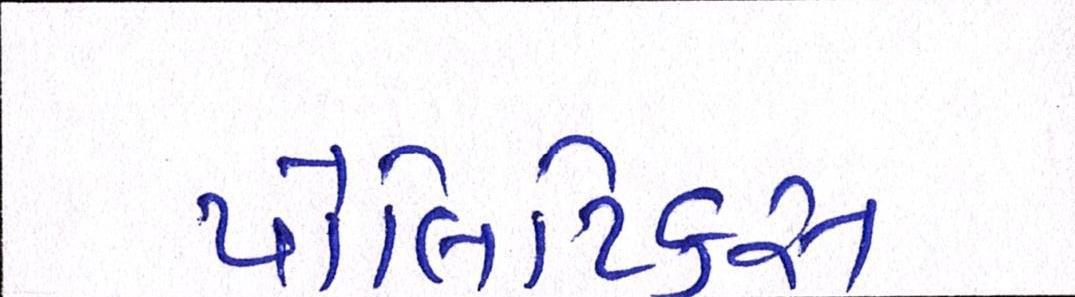 પોલિટિક્સ